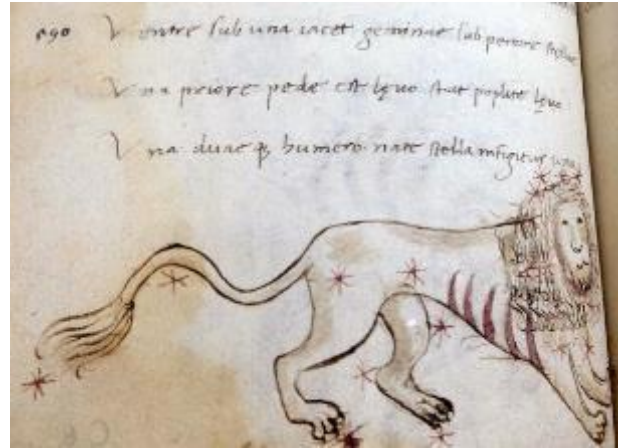 V entre sub una iacet geminae sub pectore stellae
V na priore pede est lęuo stat poplite lęuo
V na duae q humero nare stella una